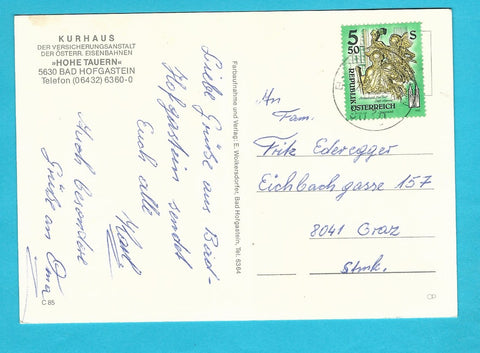 KURHAUS
DER VERSICHERUNGSANSTALT
DER ÖSTERR. EISENBAHNEN
»HOHE TAUERN«
5630 BAD HOFGASTEIN
Telefon (06432) 6360-0
Liebe Grüße aus Bad-
Hofgastein sendet
Euch alle
Karl
Auch besondere
Grüße an Oma
C 85
Farbaufnahme und Verlag: E. Wolkersdorfer, Bad Hofgastein, Tel. 6384
5 50 S
REPUBLIK
ÖSTERREICH
An
Fam.
Fritz Ederegger
Eichbachgasse 157
8041 Graz
Stmk.